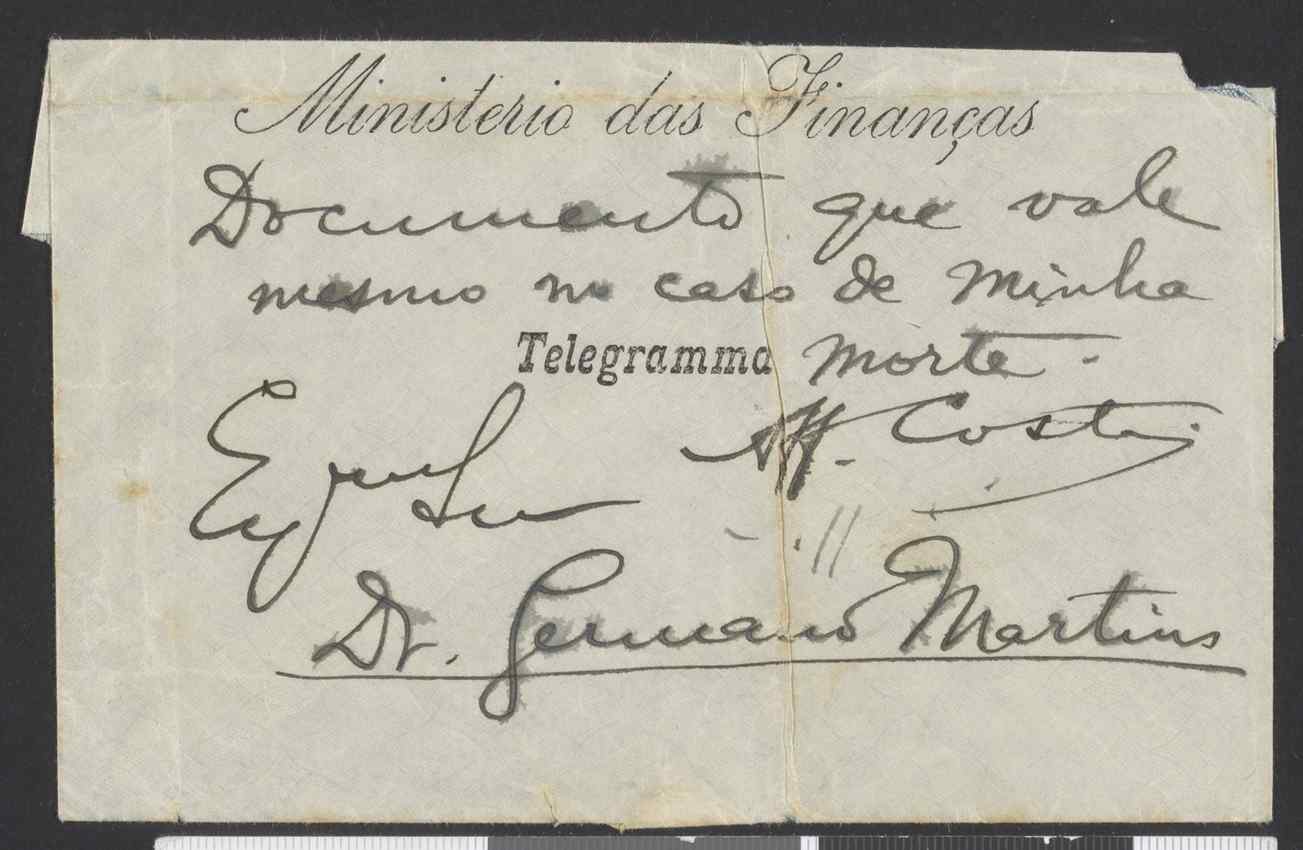 Ministerio das Finanças
Documento que vale
mesmo no caso de minha
Telegramma morte.
Aff. Costa
Exmo Snr
Dr. Germano Martins